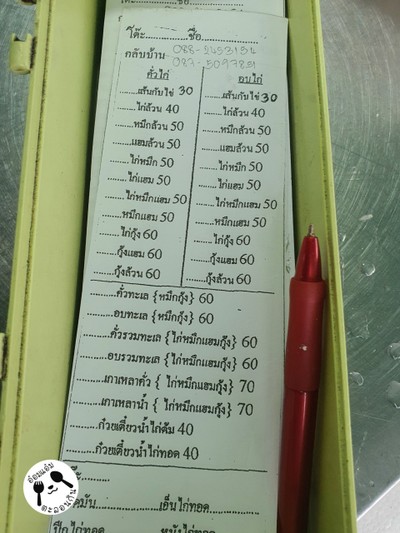 โต๊ะ...............ชื่อ...............
กลับบ้าน
คั่วไก่ อบไก่
.......เส้นกับไข่ 30 .......เส้นกับไข่ 30
.......ไก่ล้วน 40 .......ไก่ล้วน 40
.......หมึกล้วน 50 .......หมึกล้วน 50
.......แฮมล้วน 50 .......แฮมล้วน 50
.......ไก่หมึก 50 .......ไก่หมึก 50
.......ไก่แฮม 50 .......ไก่แฮม 50
.......ไก่หมึกแฮม 50 .......ไก่หมึกแฮม 50
.......หมึกแฮม 50 .......หมึกแฮม 50
.......ไก่กุ้ง 60 .......ไก่กุ้ง 60
.......กุ้งแฮม 60 .......กุ้งแฮม 60
.......กุ้งล้วน 60 .......กุ้งล้วน 60
.......คั่วทะเล {หมึกกุ้ง} 60
.......อบทะเล {หมึกกุ้ง} 60
.......คั่วรวมทะเล {ไก่หมึกแฮมกุ้ง} 60
.......อบรวมทะเล {ไก่หมึกแฮมกุ้ง} 60
.......เกาเหลาคั่ว { ไก่หมึกแฮมกุ้ง} 70
.......เกาเหลาน้ำ { ไก่หมึกแฮมกุ้ง} 70
.......ก๋วยเตี๋ยวน้ำไก่ต้ม 40
.......ก๋วยเตี๋ยวน้ำไก่ทอด 40
...............เอ็นไก่ทอด...............
ปีกไก่ทอด หนังไก่ทอด
อ้อมแอ้ม
ตะลอนกิน